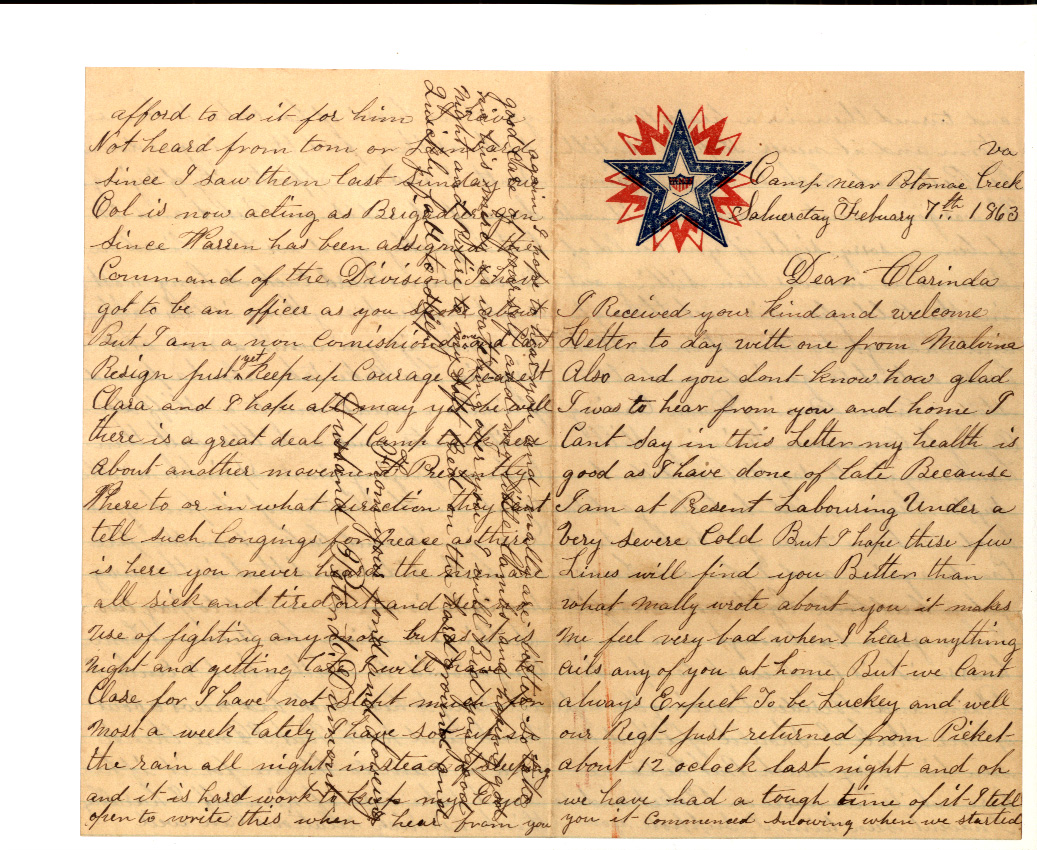 Va
Camp near Potomac Creek
Saluerday Febuary 7th. 1863
Dear Clarinda
I Received your kind and welcome
Letter to day with one from Malvina
Also and you dont know how glad
I was to hear from you and home I
Cant say in this Letter my health is
good as I have done of late Because
I am at Present Labouring Under a
Very severe Cold But I hope these few
Lines will find you Better than
what Mally wrote about you it makes
me feel very bad when I hear anything
ails any of you at home But we Cant
always Expect To be Luckey and well
our Regt just returned from Picket
about 12 oclock last night and oh
we have had a tough time of it I tell
you it Commenced snowing when we started
afford to do it for him I have
Not heard from tom or
since I saw them last Sunday our
Col is now acting as Brigadier gen
Since Warren has been assigned the
Command of the Division I have
got to be an officer as you spoke about
But I am a non Comishioned and Cant
Resign just yet Keep up Courage Dearest
Clara and I hope all may yet be well
there is a great deal of Camp talk here
About another movement Presently
Where to or in what direction they cant
tell such longings for peace as there
is here you never heard the men are
all sick and tired out and see no
use of fighting any more but as it is
night and getting late I will have to
Close for I have not slept much for
most a week lately I have
the rain all night instead of sleeping
and it is hard work to keep my Eyes
open to write this when I hear from you
again I hope to hear you and mally are better so take
good care of yourself and
in his mercy to watch over you I will Bid you good
Night and Retire to my Soft Bed in the hard ground and
Quickly fall to sleep
From your fond and loving
Husband